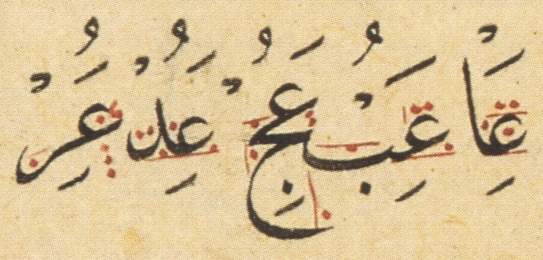 عَِاْ عَُِبْ عَُِجْ عَُِدْ عَُِرْ